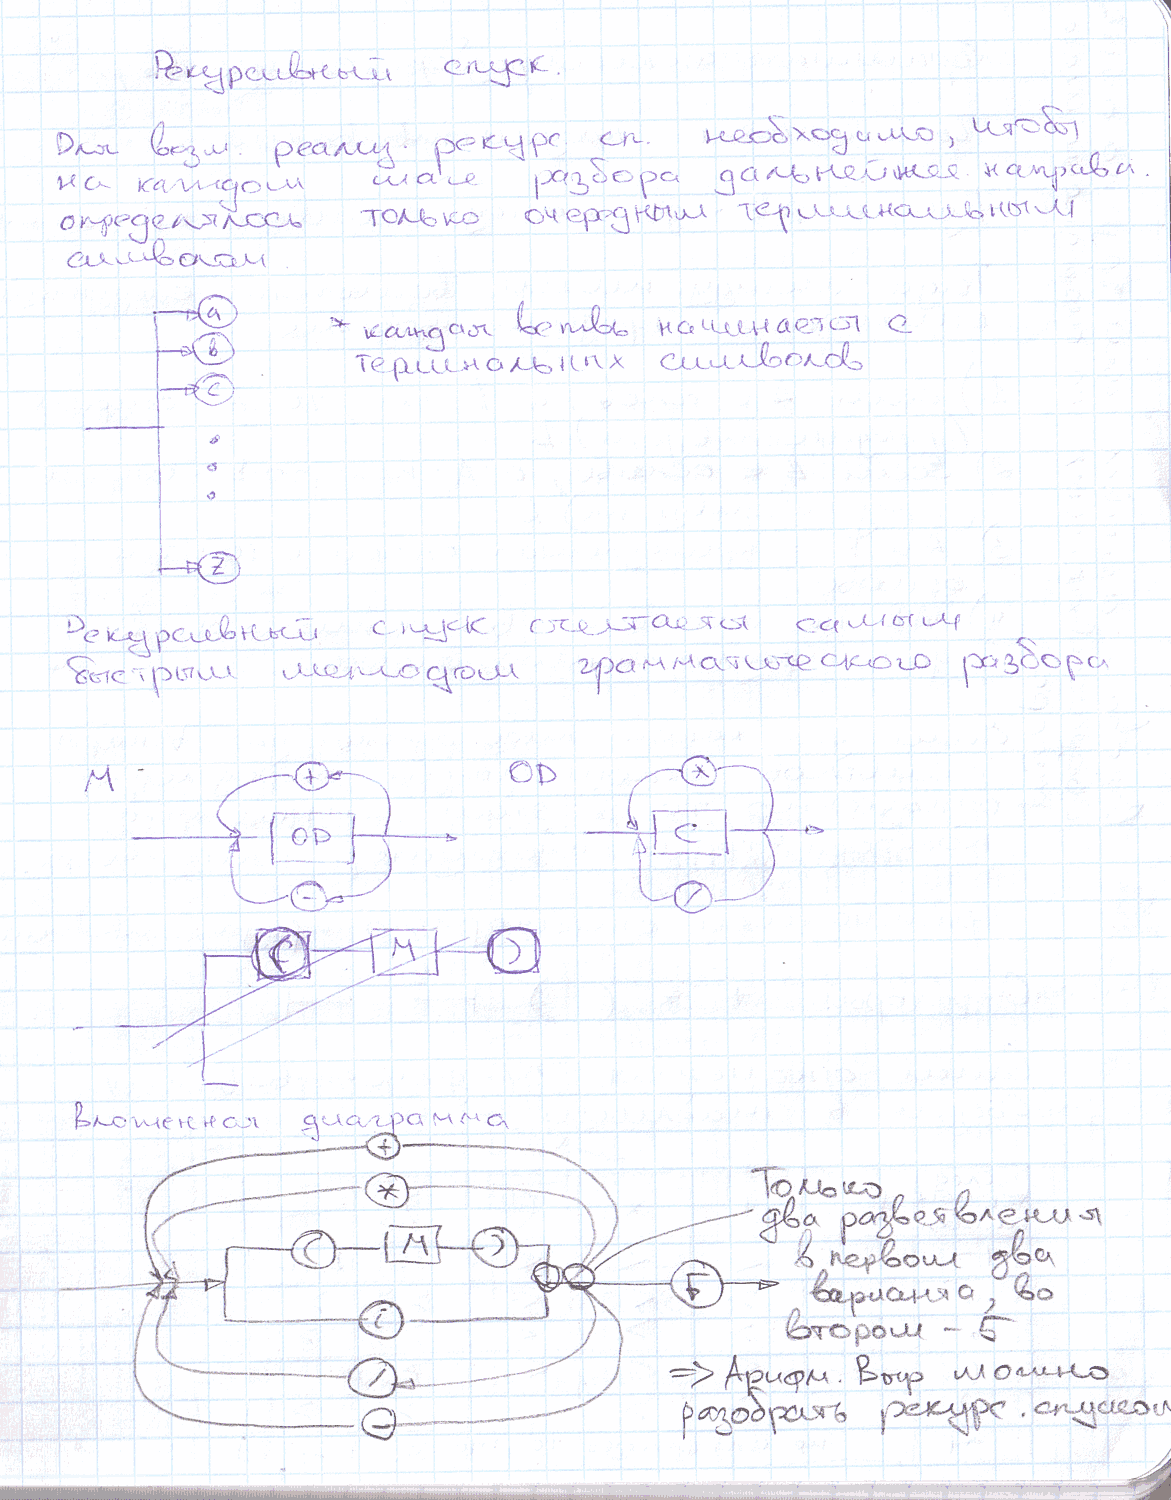 Рекурсивный спуск.
Для возм. реализ. рекурс сп. необходимо, чтобы
на каждом шаге разбора дальнейшее направл.
определялось только очередным терминальным
символом
a
* каждая ветвь начинается с
b
терминальных символов
c
z
Рекурсивный спуск считается самым
быстрым методом грамматического разбора
M -
+
OD
*
OD
C
-
/
( M )
Вложенная диаграмма
+
*
( M )
i
/
-
Б
Только
два разветвления
в первом два
варианта, во
втором - 5
=> Арифм. Выр можно
разобрать рекурс. спуском